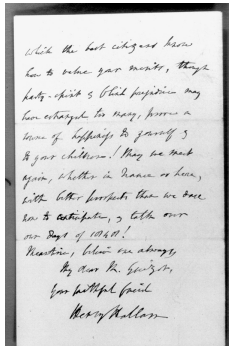 which the best citizens know
how to value your merits, though
party-spirit & blind prejudice may
have estranged too many, prove a
source of happiness to yourself &
to your children! May we meet
again, whether in France or here,
with better prospects than we dare
now to anticipate, & talk over
our days of 1840!
Meantime, believe me always,
My dear M. Guizot,
Your faithful friend
Henry Hallam